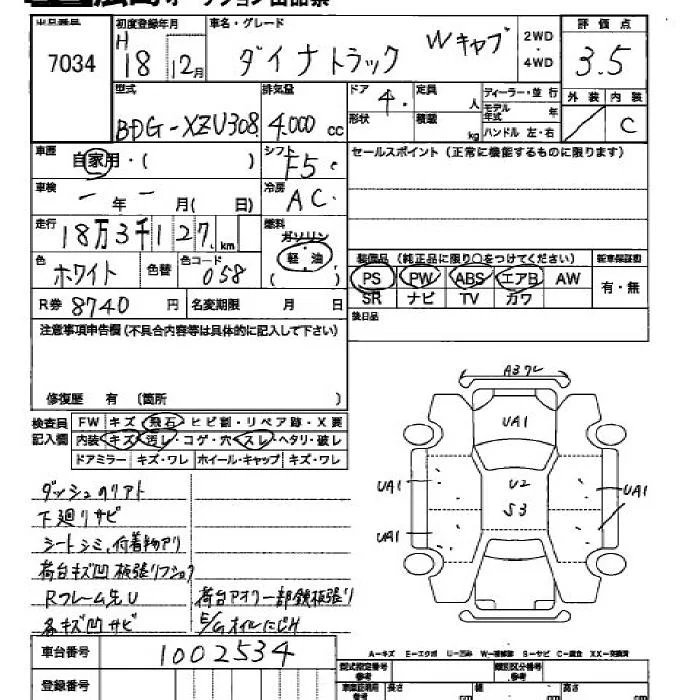 広島オークション出品票
出品番号 7034
初度登録年月 H 18 12月
車名・グレード ダイナトラック Wキャブ
2WD・4WD
評価点 3.5
型式 BDG-XZU308
排気量 4.000 cc
ドア 4.
形状
定員 人
積載 kg
ディーラー・並行
モデル年式 年
ハンドル 左・右
外装 内装 C
車歴 自家用・( )
シフト F5 c
セールスポイント (正常に機能するものに限ります)
車検 ー年ー月( 日)
冷房 AC.
走行 18万3千127km
燃料 ガソリン 軽油 ( )
色 ホワイト 色替 色コード 058
装備品 (純正品に限り○をつけてください) 新車保証書
PS PW ABS エアB AW 有・無
SR ナビ TV カワ
R券 8740円 名変期限 月 日
後日品
注意事項申告欄 (不具合内容等は具体的に記入して下さい)
修復歴 有 〔箇所 〕
検査員記入欄
FW キズ・飛石・ヒビ割・リペア跡・X要
内装 キズ・汚レ・コゲ・穴・スレ・ヘタリ・破レ
ドアミラー キズ・ワレ ホイール・キャップ キズ・ワレ
A3ワレ
UA1
U2
S3
UA1
UA1
UA1
ダッシュのリアト
下廻リサビ
シートシミ,付着物アリ
荷台キズ凹 板張リフショク
Rフレーム先U 荷台アオリ一部鉄板張リ
各キズ凹サビ E/Gオイルにじみ
車台番号 1002534
A-キズ E-エクボ U-凹み W-補修跡 S-サビ C-腐食 XX-交換済
登録番号
型式指定番号 類別区分番号
長さ cm 幅 cm 高さ cm